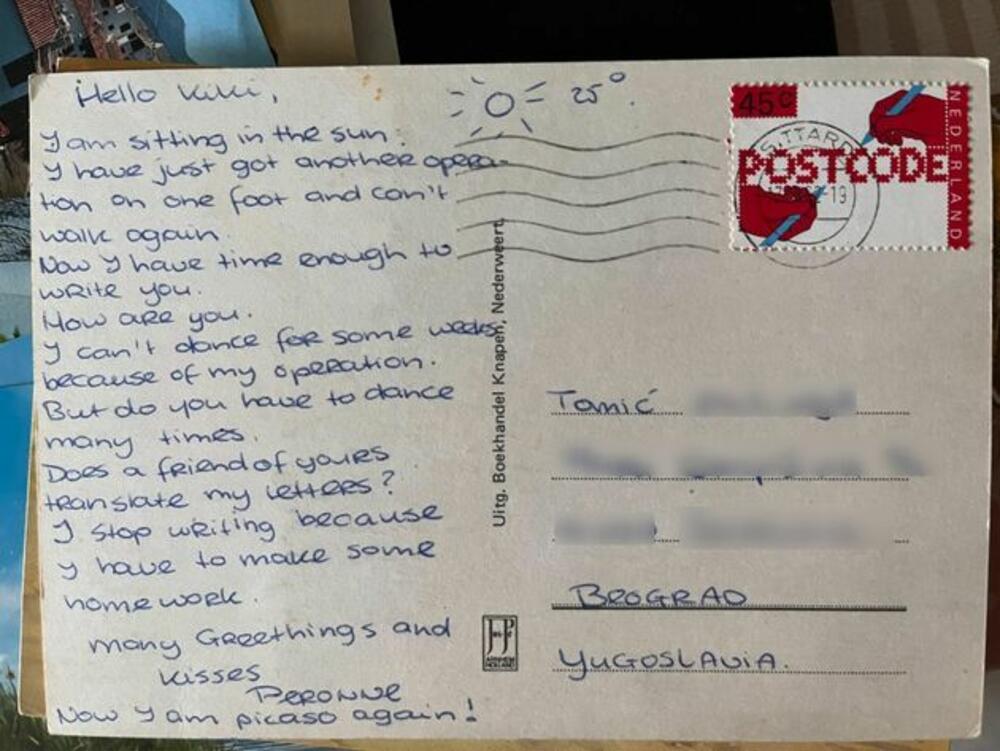 Hello Kiki,
25°.
I am sitting in the sun.
I have just got another opera-
tion on one foot and can't
walk again.
Now I have time enough to
write you.
How are you.
I can't dance for some weeks
because of my operation.
But do you have to dance
many times.
Does a friend of yours
translate my letters?
I stop writing because
I have to make some
home work.
Many Greethings and
kisses
Peronne
Now I am picaso again!
Uitg. Boekhandel Knapen, Nederweert.
45c
NEDERLAND
POSTCODE
SITTARD
19
Tomić
BEOGRAD
YUGOSLAVIA.
ARNHEM
HOLLAND